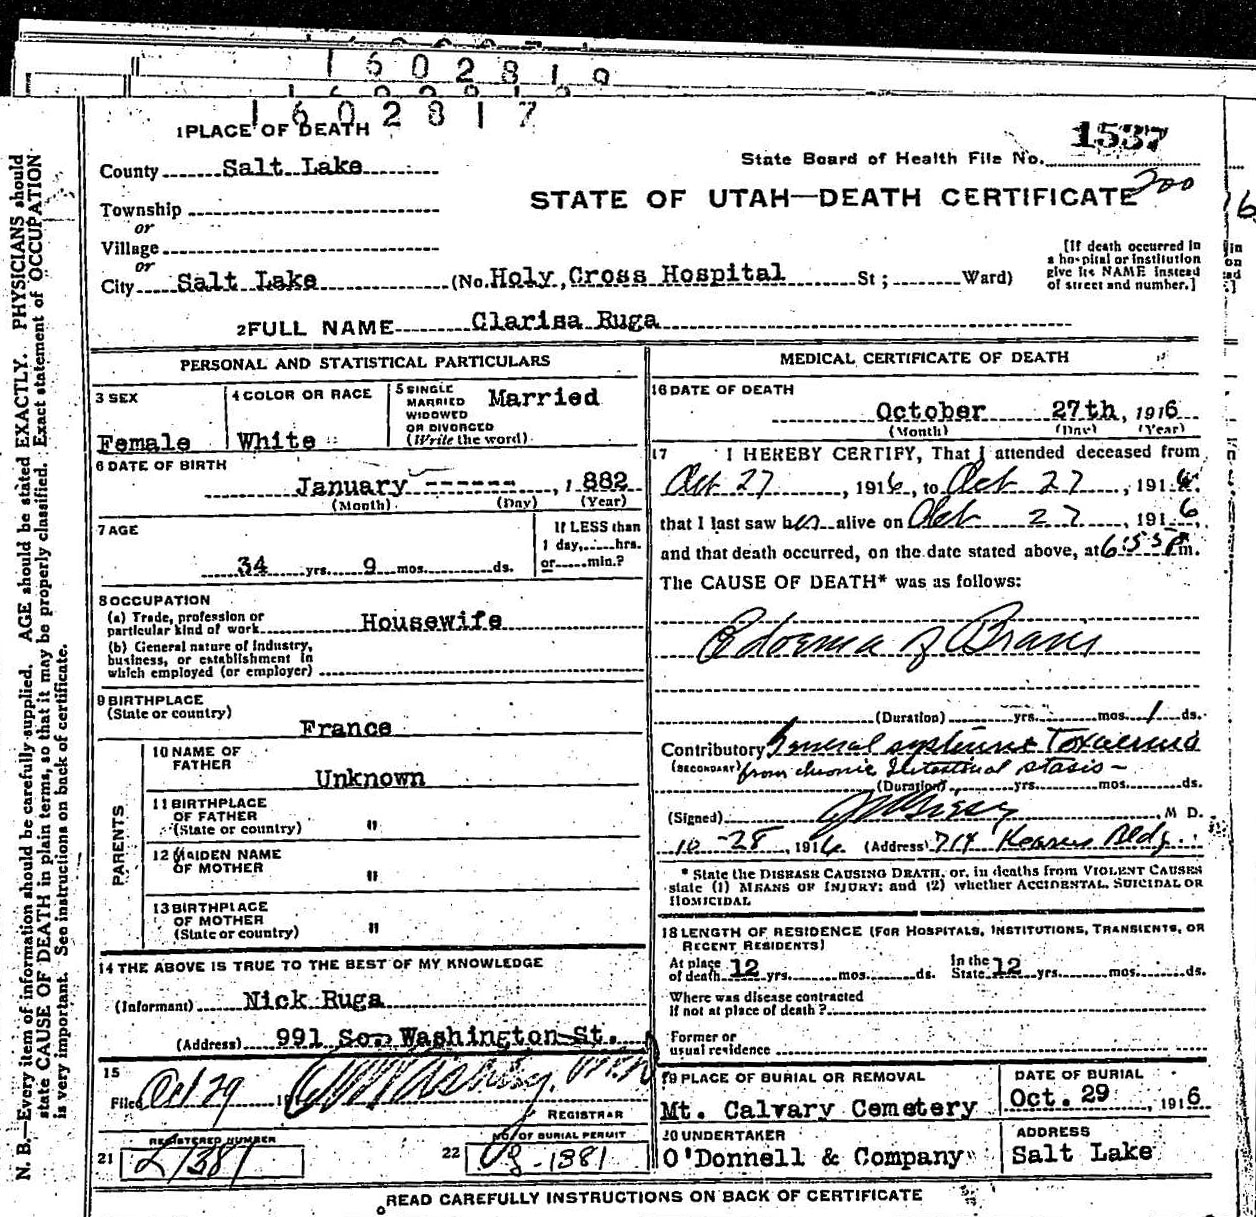 1602819
1602817
1 PLACE OF DEATH
1537
State Board of Health File No.
200
County Salt Lake
STATE OF UTAH—DEATH CERTIFICATE
Township
or
Village
or
City Salt Lake (No. Holy Cross Hospital St; Ward)
[If death occurred in
a hospital or institution
give its NAME instead
of street and number.]
2 FULL NAME Clarisa Ruga
PERSONAL AND STATISTICAL PARTICULARS
3 SEX
Female
4 COLOR OR RACE
White
5 SINGLE
MARRIED
WIDOWED
OR DIVORCED
(Write the word)
Married
6 DATE OF BIRTH
January ------, 1882
(Month) (Day) (Year)
7 AGE
34 yrs. 9 mos. ds.
If LESS than
1 day, hrs.
or min.?
8 OCCUPATION
(a) Trade, profession or
particular kind of work Housewife
(b) General nature of industry,
business, or establishment in
which employed (or employer)
9 BIRTHPLACE
(State or country)
France
PARENTS
10 NAME OF
FATHER
Unknown
11 BIRTHPLACE
OF FATHER
(State or country) "
12 MAIDEN NAME
OF MOTHER "
13 BIRTHPLACE
OF MOTHER
(State or country) "
14 THE ABOVE IS TRUE TO THE BEST OF MY KNOWLEDGE
(Informant) Nick Ruga
(Address) 991 So. Washington St.
15
Filed Oct 29 19
REGISTRAR
21 REGISTERED NUMBER
L1381
22 NO. OF BURIAL PERMIT
-1381
MEDICAL CERTIFICATE OF DEATH
16 DATE OF DEATH
October 27th, 1916
(Month) (Day) (Year)
17 I HEREBY CERTIFY, That I attended deceased from
Oct 27, 1916, to Oct 27, 1916.
that I last saw her alive on Oct 27, 1916,
and that death occurred, on the date stated above, at 6:55 P m.
The CAUSE OF DEATH* was as follows:
Edoema of Brain
(Duration) yrs. mos. 1 ds.
Contributory General systemic Toxaemia
(SECONDARY) from chronic Intestinal stasis—
(Duration) yrs. mos. ds.
(Signed) M D.
10-28, 1916. (Address) 714 Kearns Bldg.
* State the DISEASE CAUSING DEATH, or, in deaths from VIOLENT CAUSES
state (1) MEANS OF INJURY; and (2) whether ACCIDENTAL, SUICIDAL OR
HOMICIDAL
18 LENGTH OF RESIDENCE (FOR HOSPITALS, INSTITUTIONS, TRANSIENTS, OR
RECENT RESIDENTS)
At place
of death 12 yrs. mos. ds.
In the
State 12 yrs. mos. ds.
Where was disease contracted
if not at place of death?
Former or
usual residence
19 PLACE OF BURIAL OR REMOVAL
Mt. Calvary Cemetery
DATE OF BURIAL
Oct. 29, 1916
20 UNDERTAKER
O'Donnell & Company
ADDRESS
Salt Lake
READ CAREFULLY INSTRUCTIONS ON BACK OF CERTIFICATE
N. B.—Every item of information should be carefully supplied. AGE should be stated EXACTLY. PHYSICIANS should
state CAUSE OF DEATH in plain terms, so that it may be properly classified. Exact statement of OCCUPATION
is very important. See instructions on back of certificate.